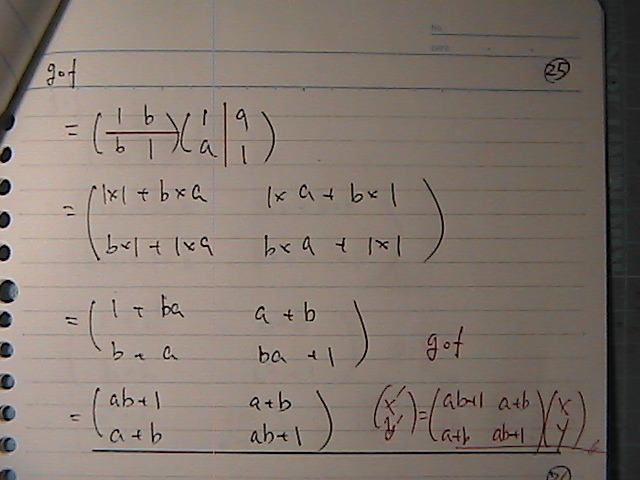 NO.
DATE
g∘f
㉕
= (1 b / b 1)(1 a / a 1)
= (1×1+b×a 1×a+b×1
b×1+1×a b×a+1×1)
= (1+ba a+b
b+a ba+1)
g∘f
= (ab+1 a+b
a+b ab+1)
(x' / y') = (ab+1 a+b / a+b ab+1)(x / y)